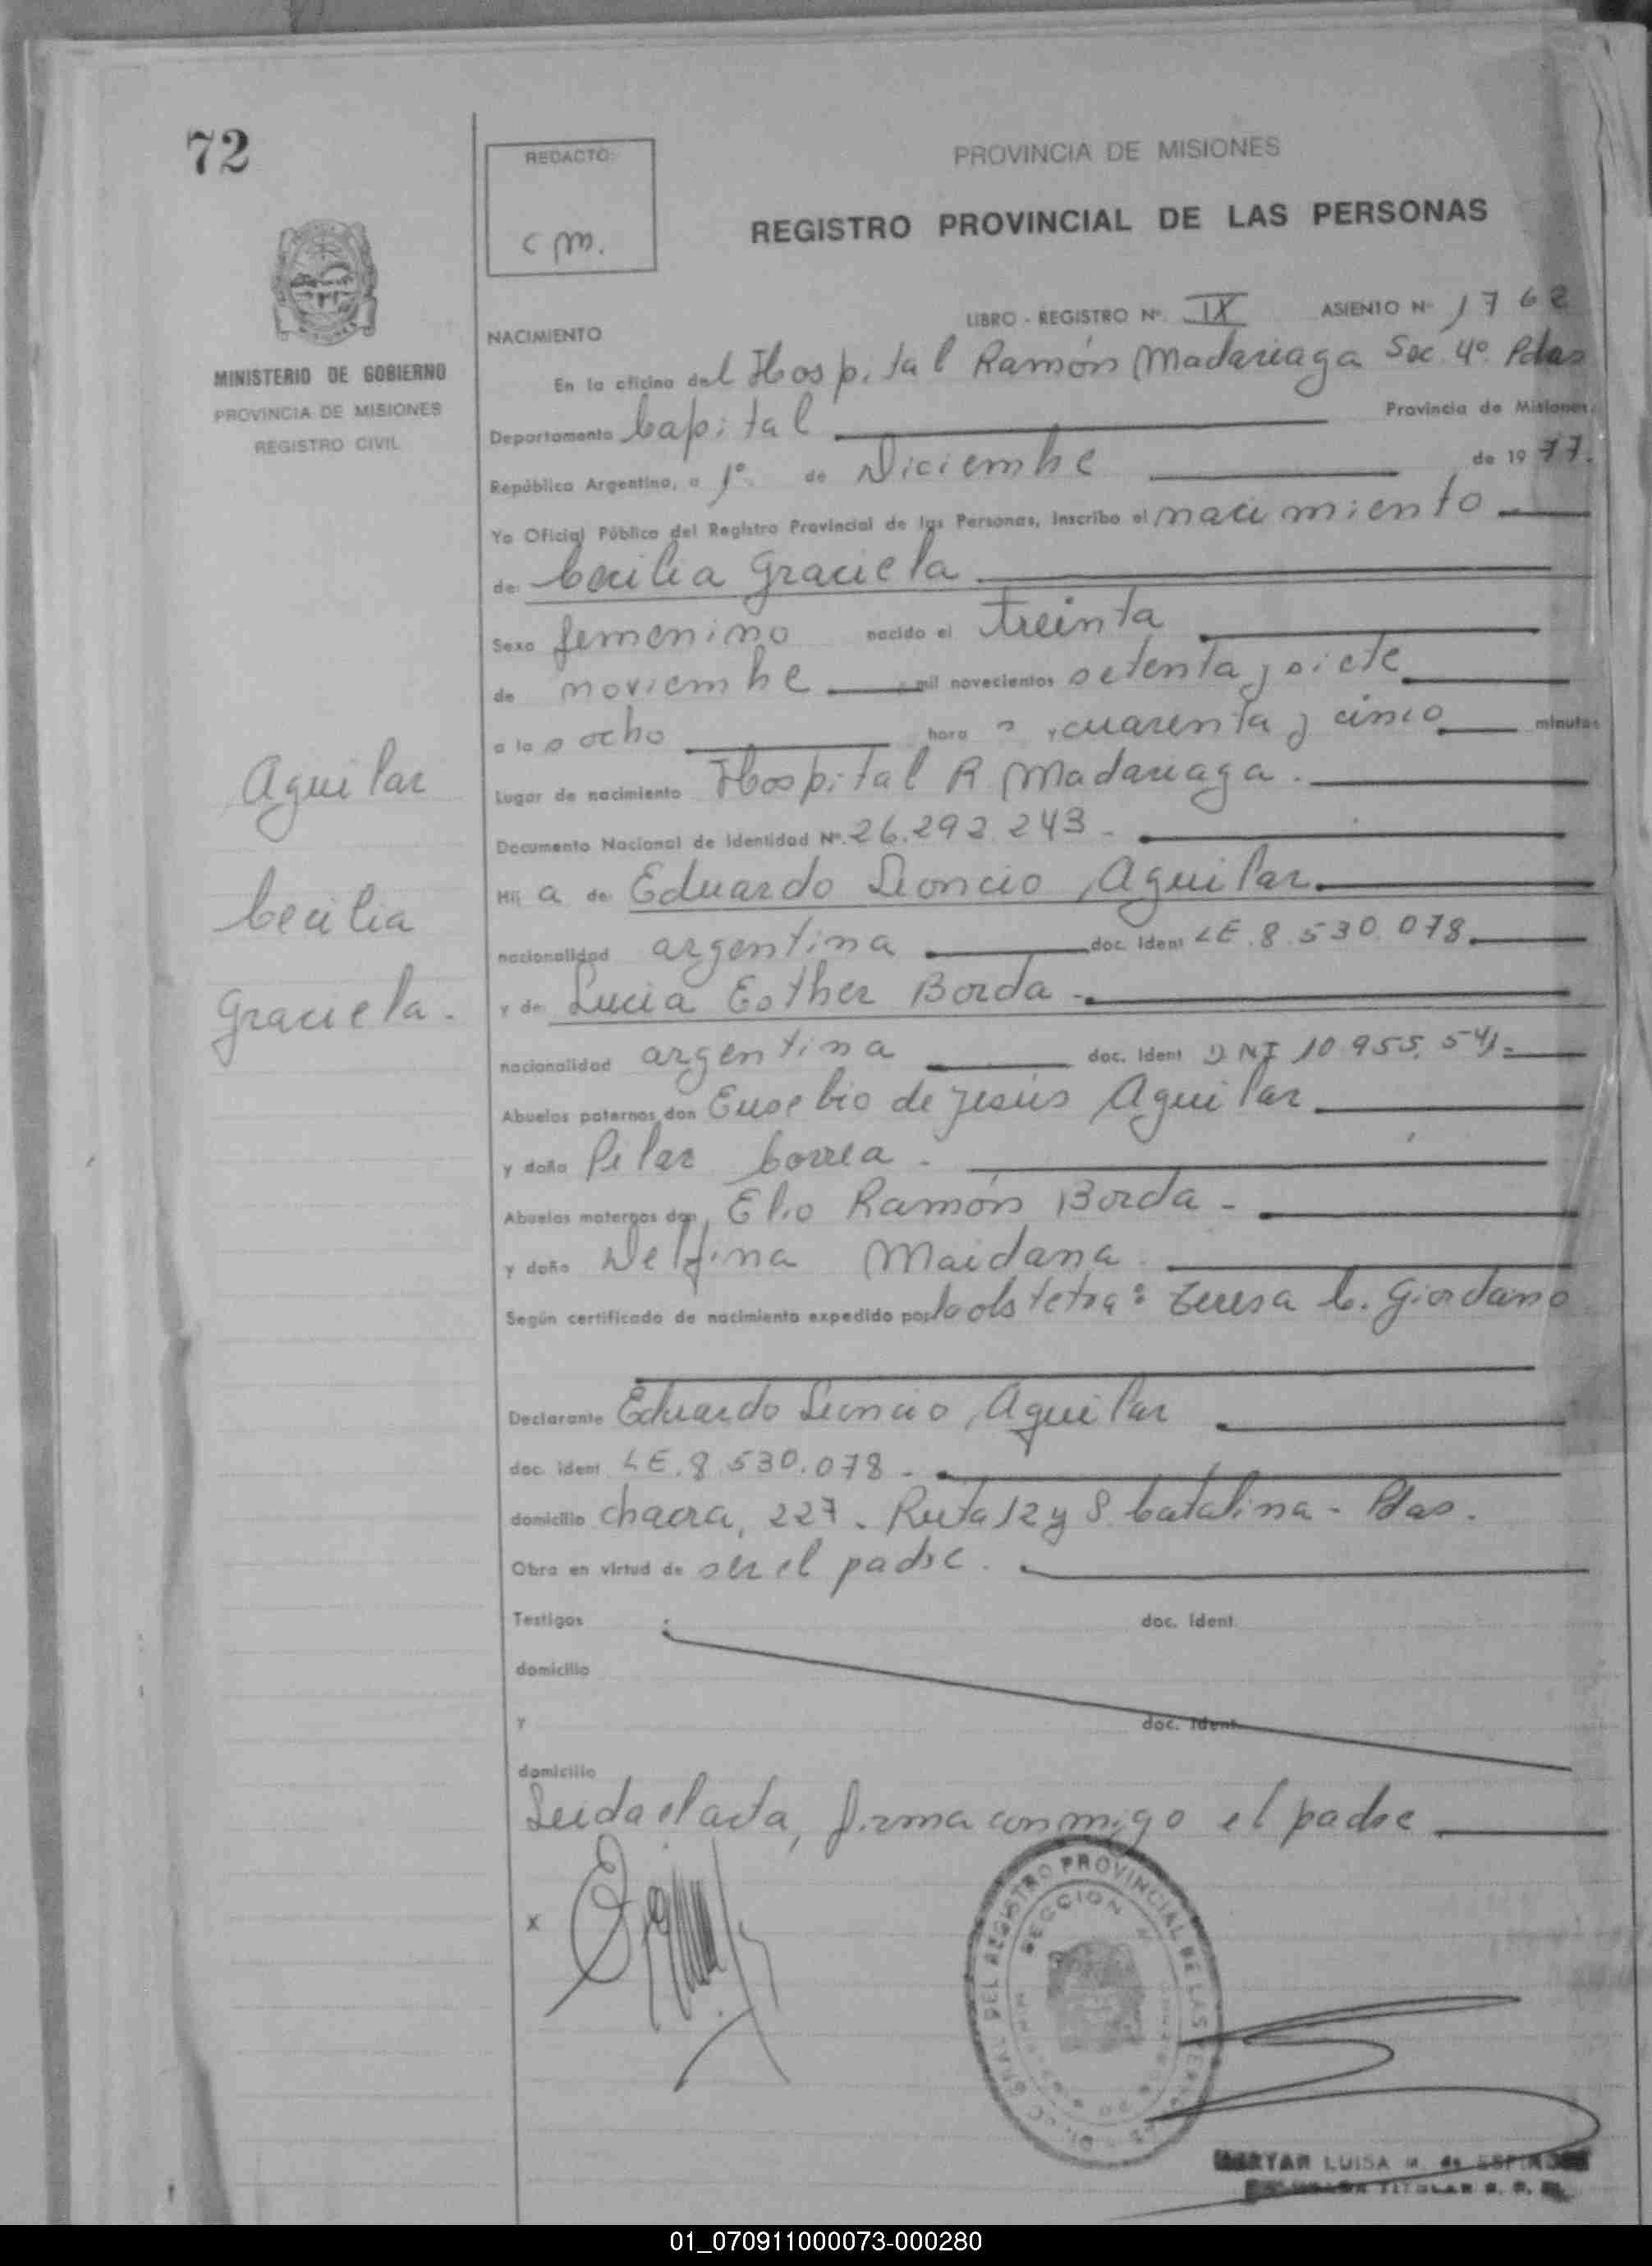 72
REDACTO:
c m.
PROVINCIA DE MISIONES
REGISTRO PROVINCIAL DE LAS PERSONAS
MINISTERIO DE GOBIERNO
PROVINCIA DE MISIONES
REGISTRO CIVIL
LIBRO - REGISTRO Nº. IX ASIENTO Nº 1762
NACIMIENTO
En la oficina del Hospital Ramón Madariaga Sec. 4º. Pdas
Departamento Capital Provincia de Misiones,
República Argentina, a 1º. de Diciembre de 1977.
Yo Oficial Público del Registro Provincial de las Personas, inscribo el nacimiento
de: Cecilia Graciela
Sexo femenino nacido el treinta
de noviembre mil novecientos setenta y siete
a las ocho horas y cuarenta y cinco minutos
Lugar de nacimiento Hospital R Madariaga.
Documento Nacional de Identidad Nº. 26.292.243-
Hija de Eduardo Leoncio Aguilar
nacionalidad argentina doc. Ident LE.8.530.078.
y de Lucia Esther Borda-
nacionalidad argentina doc. Ident DNI 10.955.541-
Abuelos paternos don Eusebio de Jesús Aguilar
y doña Pilar Correa-
Abuelos maternos don, Elio Ramón Borda-
y doña Delfina Maidana
Según certificado de nacimiento expedido por la obstetra: Teresa C. Giordano
Declarante Eduardo Leoncio Aguilar
doc. ident LE.8.530.078-
domicilio chacra, 227. Ruta 12 y S. Catalina - Pdas.
Obra en virtud de ser el padre.
Testigos doc. Ident.
domicilio
y doc. Ident.
domicilio
Leida el acta, firma conmigo el padre
Aguilar
Cecilia
Graciela.
x
DEL REGISTRO PROVINCIAL DE LAS PERSONAS
SECCION
LUISA M. de
TITULAR
01_070911000073-000280